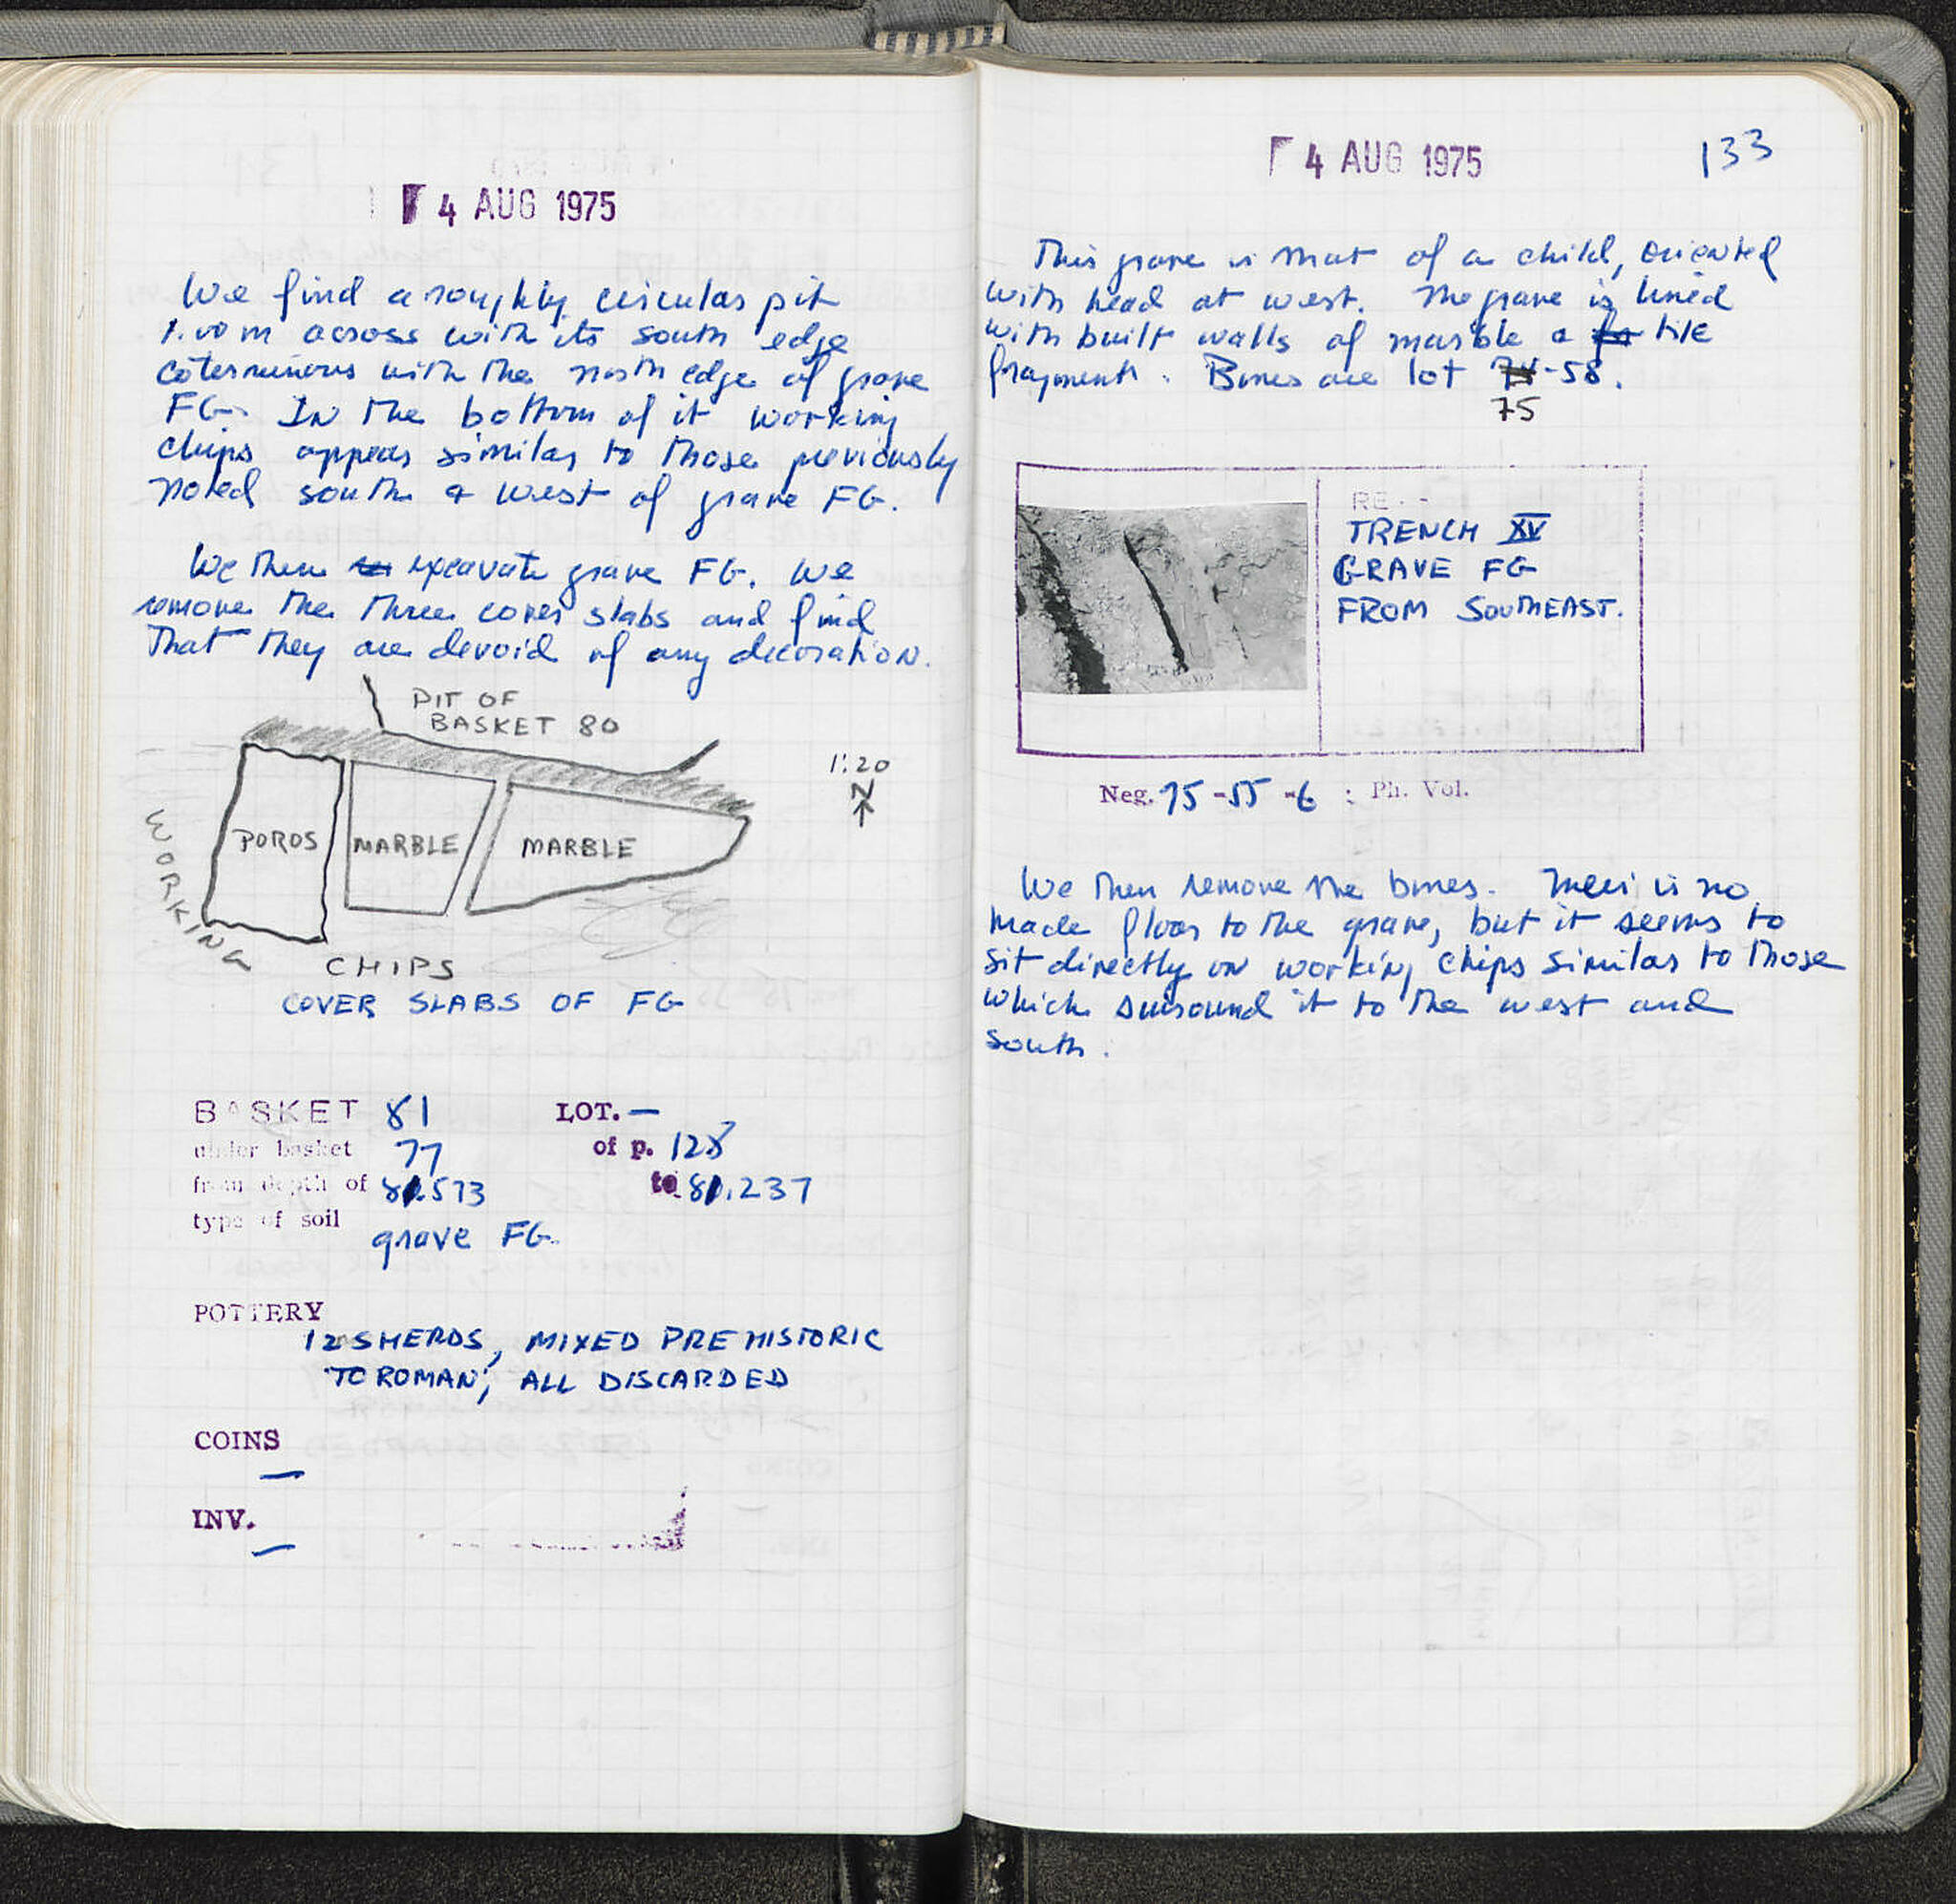 4 AUG 1975
We find a roughly circular pit
1.00 m across with its south edge
coterminous with the north edge of grave
FG. In the bottom of it working
chips appear similar to those previously
noted south & west of grave FG.
We then excavate grave FG. We
remove the three cover slabs and find
that they are devoid of any decoration.
PIT OF
BASKET 80
1:20
N
POROS MARBLE MARBLE
WORKING
CHIPS
COVER SLABS OF FG
BASKET 81 LOT. —
under basket 77 of p. 128
from depth of 81.573 to 81.237
type of soil
grave FG.
POTTERY
12 SHERDS, MIXED PREHISTORIC
TO ROMAN; ALL DISCARDED
COINS
—
INV.
—
4 AUG 1975
133
This grave is that of a child, oriented
with head at west. The grave is lined
with built walls of marble & tile
fragments. Bones are lot 74-58.
75
RE
TRENCH XV
GRAVE FG
FROM SOUTHEAST.
Neg. 75-55-6 : Ph. Vol.
We then remove the bones. There is no
made floor to the grave, but it seems to
sit directly on working chips similar to those
which surround it to the west and
south.